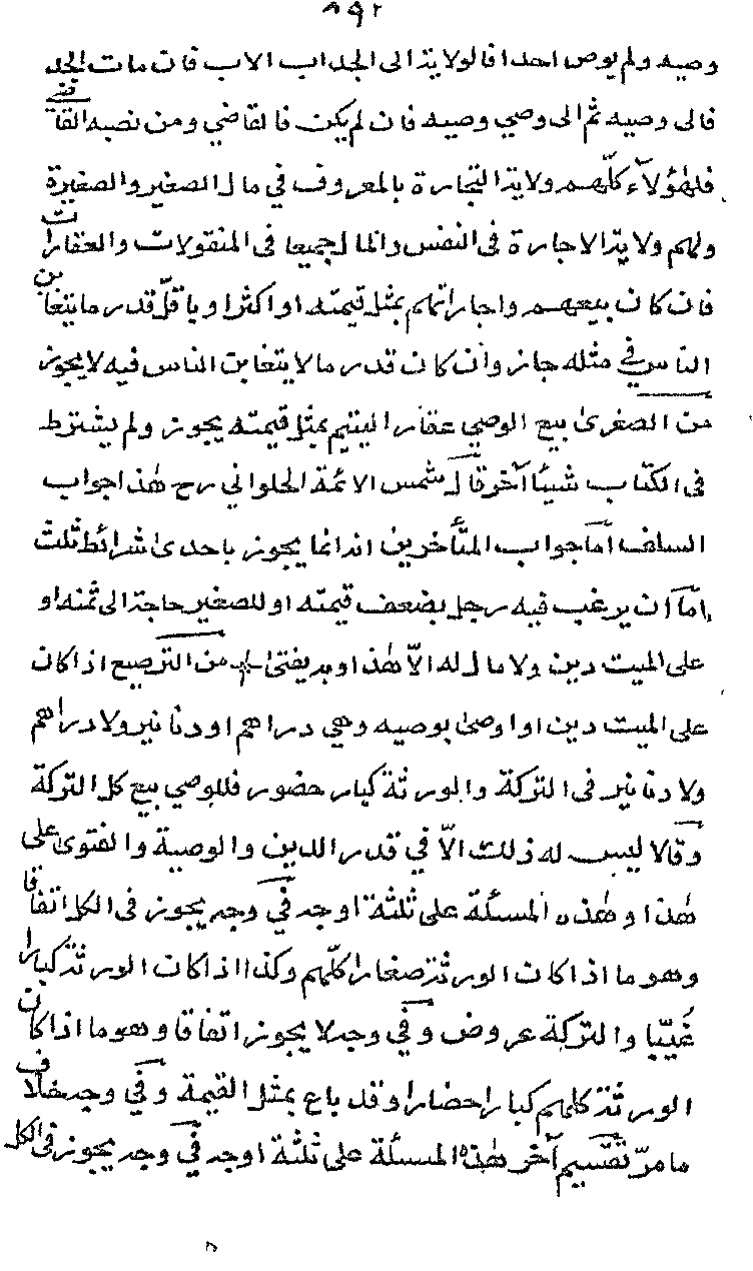 ٨٩٢
وصيه ولم يوص احدا فالولاية الى الجد اب الاب فان مات الجد
فالى وصيه ثم الى وصي وصيه فان لم يكن فالقاضي ومن نصبه القاضي
فلهؤلاء كلهم ولاية التجارة بالمعروف في مال الصغير والصغيرة
ولهم ولاية الاجارة فى النفس والمال جميعا فى المنقولات والعقارات
فان كان بيعهم واجاراتهم بمثل قيمته او اكثر او باقلّ قدر ما يتغابن
الناس في مثله جاز وان كان قدر ما لا يتغابن الناس فيه لا يجوز
من الصغرىٰ بيع الوصي عقار اليتيم بمثل قيمته يجوز ولم يشترط
فى الكتاب شيئا آخر قال شمس الائمة الحلواني رح هٰذا جواب
السلف امّا جواب المتأخرين انه انما يجوز باحدى شرائط ثلث
امّا ان يرغب فيه رجل بضعف قيمته او للصغير حاجة الى ثمنه او
على الميت دين ولا مال له الاّ هٰذا وبه يفتىٰ من الترصيع اذا كان
على الميت دين او اوصىٰ بوصيه وهي دراهم او دنانير ولا دراهم
ولا دنانير فى التركة والورثة كبار حضور فللوصي بيع كل التركة
وقالا ليس له ذلك الاّ في قدر الدين والوصية والفتوىٰ على
هٰذا وهٰذه المسئلة على ثلثة اوجه في وجه يجوز فى الكل اتفاقا
وهو ما اذا كان الورثة صغارا كلّهم وكذا اذا كان الورثة كبارا
غَيّبا والتركة عروض وفي وجه لا يجوز اتفاقا وهو ما اذا كان
الورثة كلهم كبارا حضارا وقد باع بمثل القيمة وفي وجه خلاف
ما مرّ تقسيم آخر هٰذه المسئلة على ثلثة اوجه في وجه يجوز فى الكل